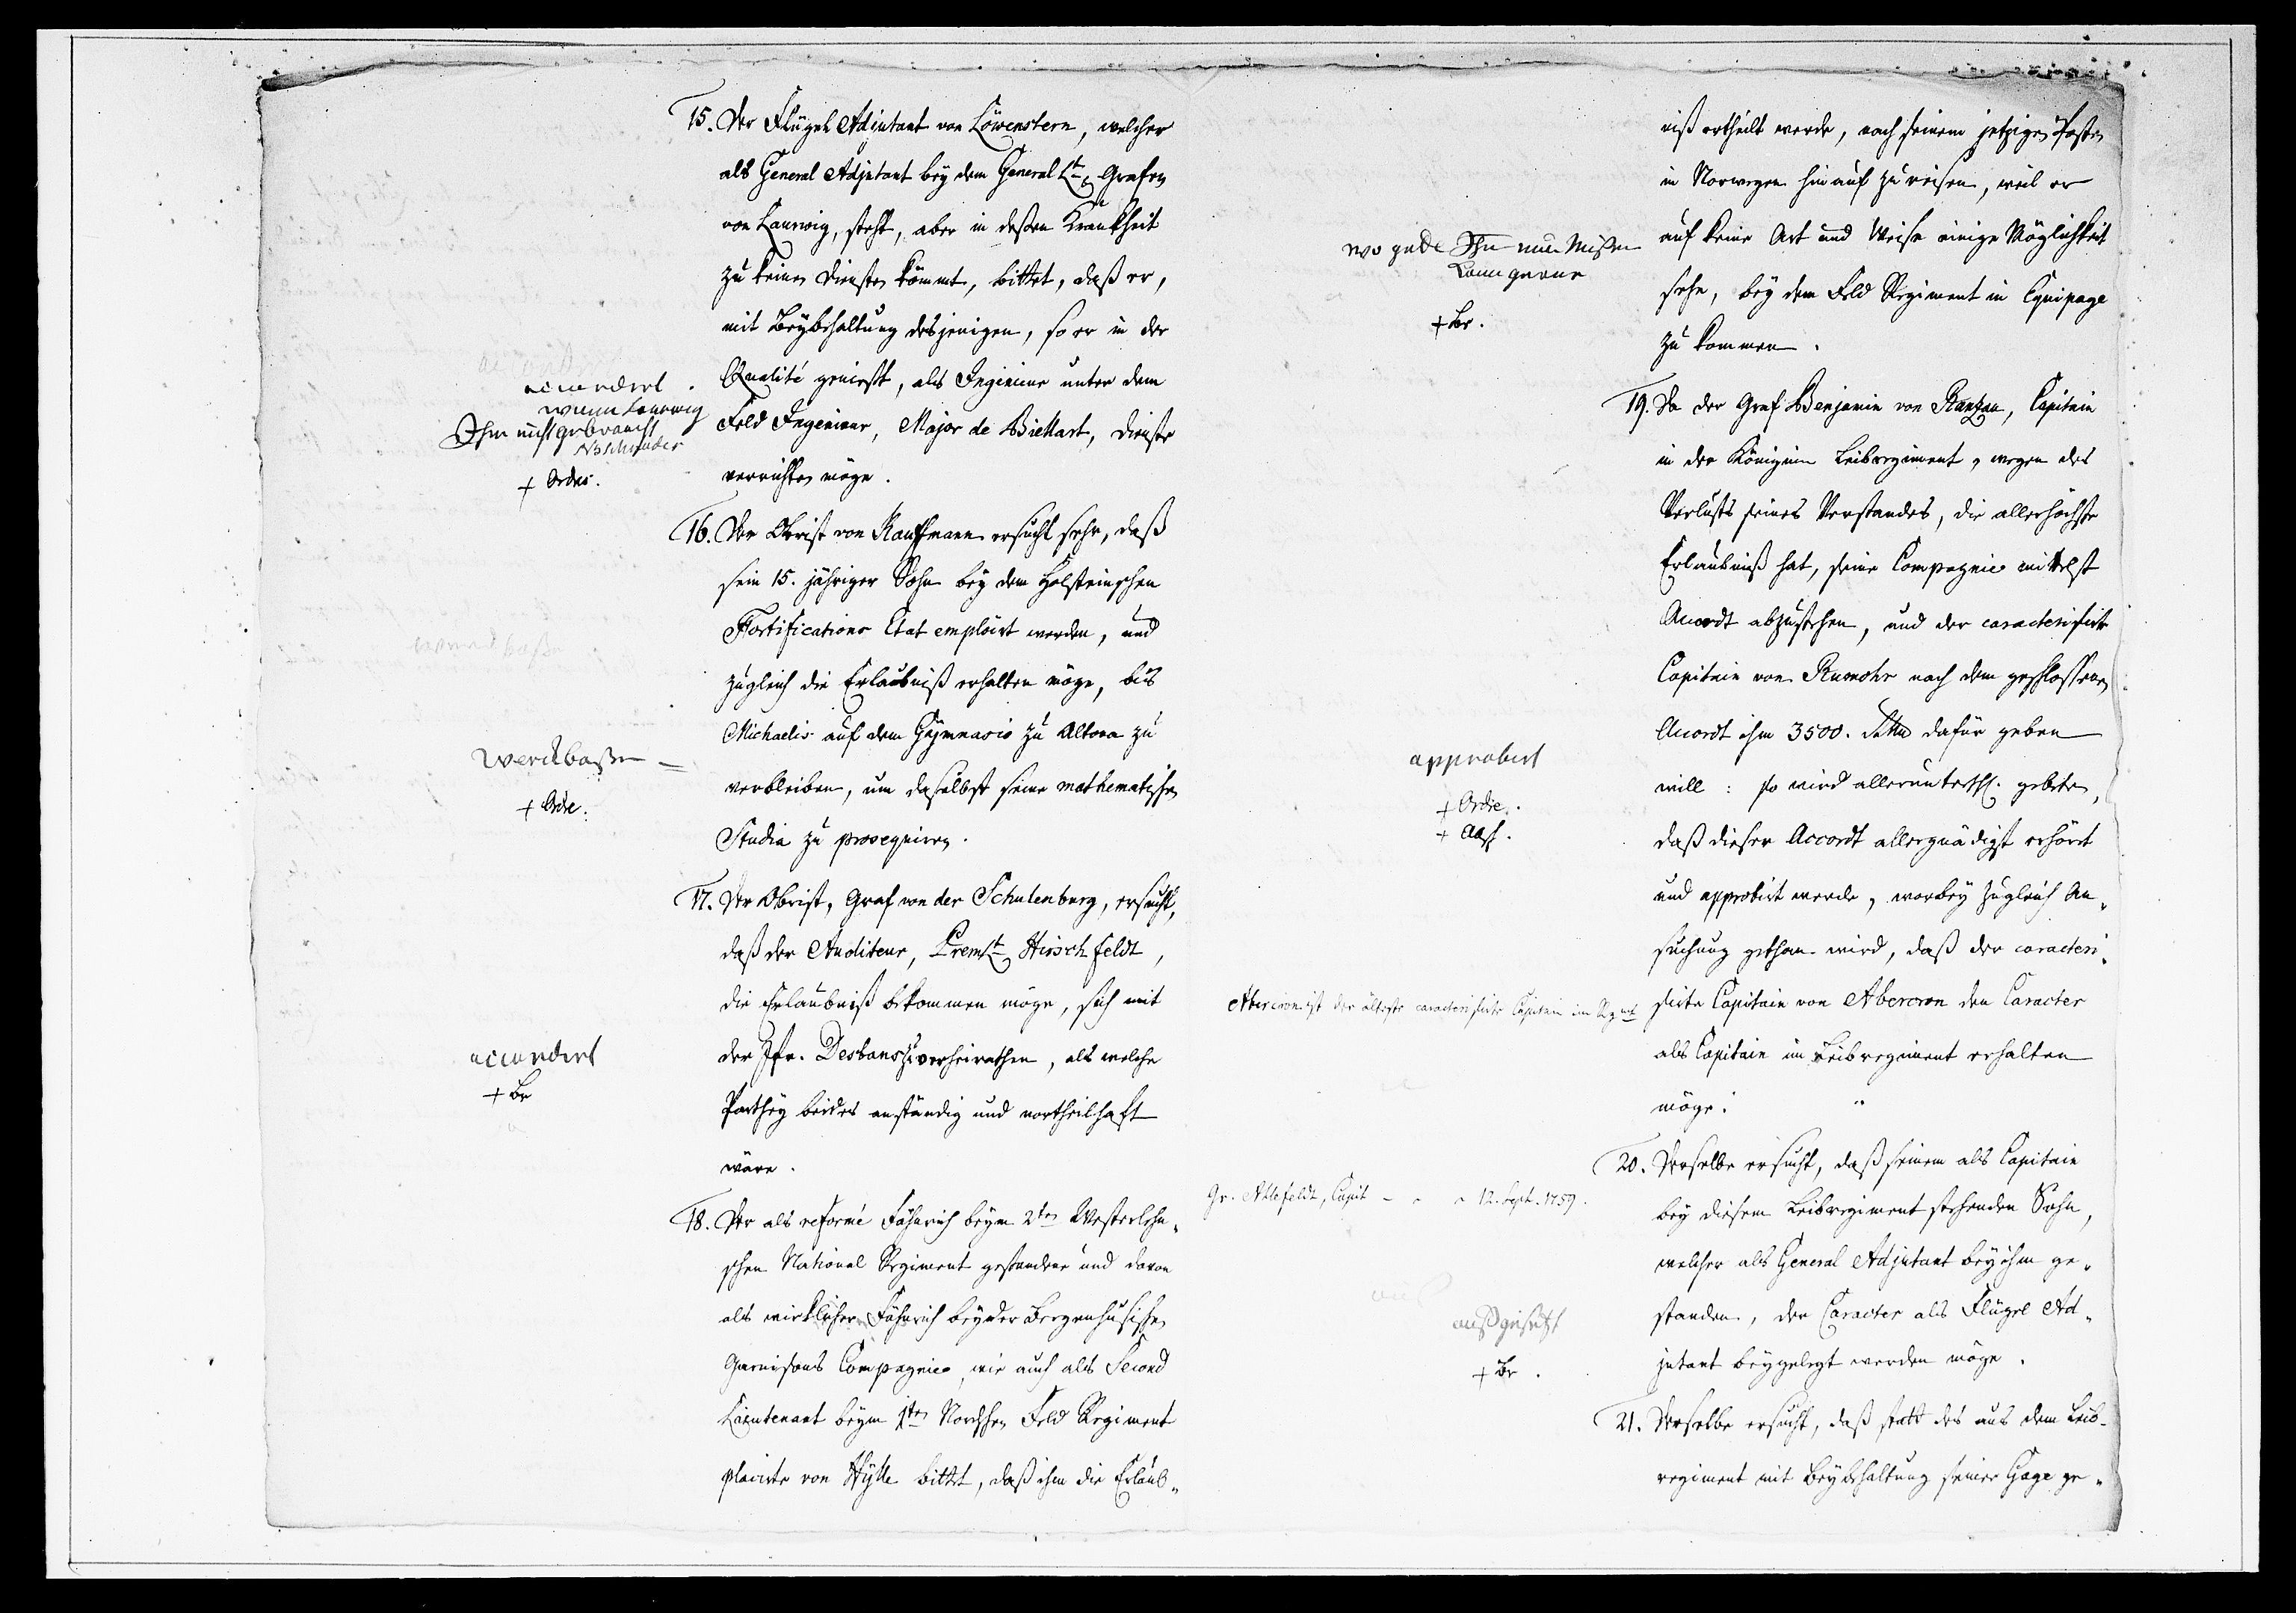 15. Der Flügel Adjutant von Löwenstern, welcher
als General Adjutant bey dem General Lt. Grafen
von Laurwig, steht, aber in deßen Krankheit
zu keinen Diensten kömmt, bittet, daß er,
mit Beybehaltung desjenigen, so er in der
Qualité genießt, als Ingenieur unter dem
Feld Ingenieur, Major de Biellart, Dienste
verrichten möge.
accordert
wenn Laurwig
Ihm nicht gebraucht
+ Ordre.
16. Der Obrist von Kauffmann ersucht sehr, daß
sein 15. jähriger Sohn bey dem Holsteinschen
Fortifications Etat emploirt werden, und
zugleich die Erlaubniß erhalten möge, bis
Michaelis auf dem Gymnasio zu Altona zu
verbleiben, um daselbst seine mathematische
Studia zu prosequiren.
+ Ordre.
17. Der Obrist, Graf von der Schulenburg, ersucht,
daß der Auditeur, Premlt. Hirschfeldt,
die Erlaubniß bekommen möge, sich mit
der Jfr. Desbans zu verheirathen, als welche
Parthey beides anständig und vortheilhaft
wäre.
accordert
+ Br
18. Der als reformé Fähnrich beym 2ten Westerlehn„
schen National Regiment gestandene und davon
als wirklicher Fähnrich bey der Bergenhusische
Garnisons Compagnie, wie auch als Second
Lieutenant beym 1ten Nordschen Feld Regiment
placirte von Hylle bittet, daß ihm die Erlaub„
niß ertheilt werde, nach seinem jetzigen Posten
in Norwegen hinauf zu reisen, weil er
auf keine Art und Weise einige Möglichkeit
sehe, bey dem Feld Regiment in Equipage
zu kommen.
wo gude Ihn nun Mißen
kann gerne
+ Br.
19. Da der Graf Benjamin von Rantzau, Capitain
in der Königinn Leibregiment, wegen des
Verlusts seines Verstandes, die allerhöchste
Erlaubniß hat, seine Compagnie mittelst
Accordt abzustehen, und der caracterisirte
Capitain von Rumohr nach dem geschlossenen
Accordt ihm 3500. Rthlr dafür geben
will: so wird allerunterth. gebeten,
daß dieser Accordt allergnädigst erhört
und approbirt werde,worbey zugleich An„
suchung gethan wird, daß der caracteri„
sirte Capitain von Abercron den Caracter
als Capitain im Leibregiment erhalten
möge.
approbert
+ Ordre.
+ Absch.
Abercron ist der älteste caracterisirte Capitain im Rgmt
20. Derselbe ersucht, daß seinem als Capitain
bey diesem Leibregiment stehenden Sohn,
welcher als General Adjutant bey ihm ge„
standen, der Caracter als Flügel Ad„
jutant beygelegt werden möge.
Gr. Ahlefeldt, Capit - - - 12. Sept. 1759.
außgesetzt
+ Br.
21. Derselbe ersucht, daß statt des aus dem Leib-
regiment mit Beybehaltung seiner Gage ge„